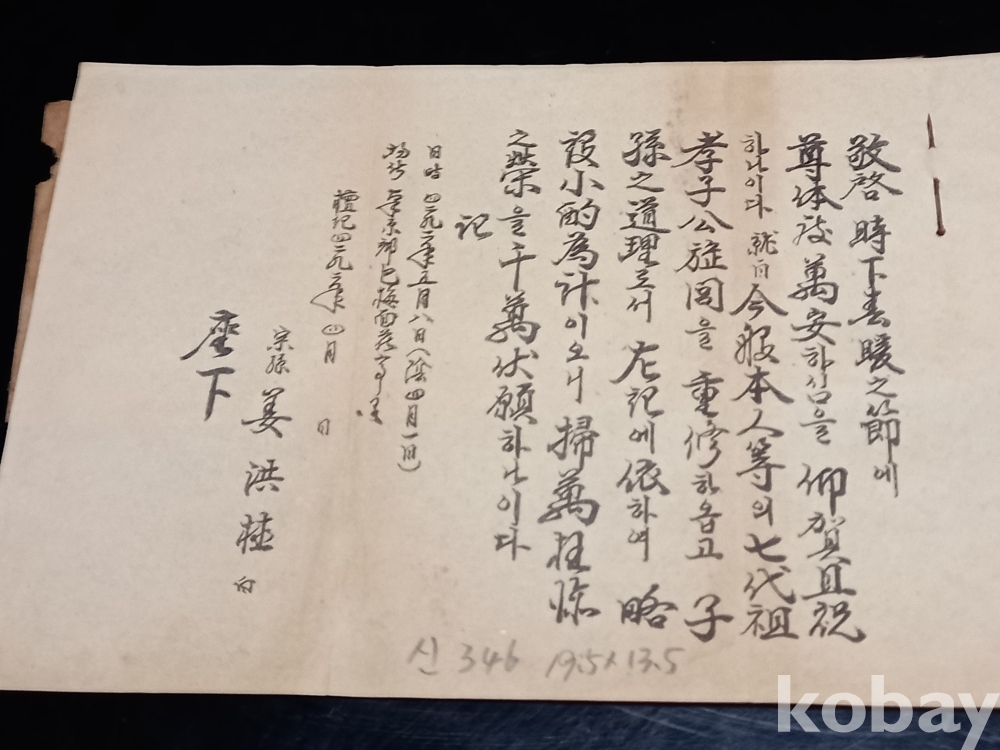 敬啓 時下春暖之節에
尊体度萬安하심을 仰賀且祝
하나이다 就白今般本人等의七代祖
孝子公旌閭을 重修하옵고 子
孫之道理로서 左記에依하여 略
設小酌為計이오니 掃萬枉臨
之榮을千萬伏願하나이다
記
日時 四二九二年五月八日(陰四月一日)
場所
檀紀四二九二年 四月 日
宗孫 姜洪 白
座下
신 346 19.5×13.5
kobay